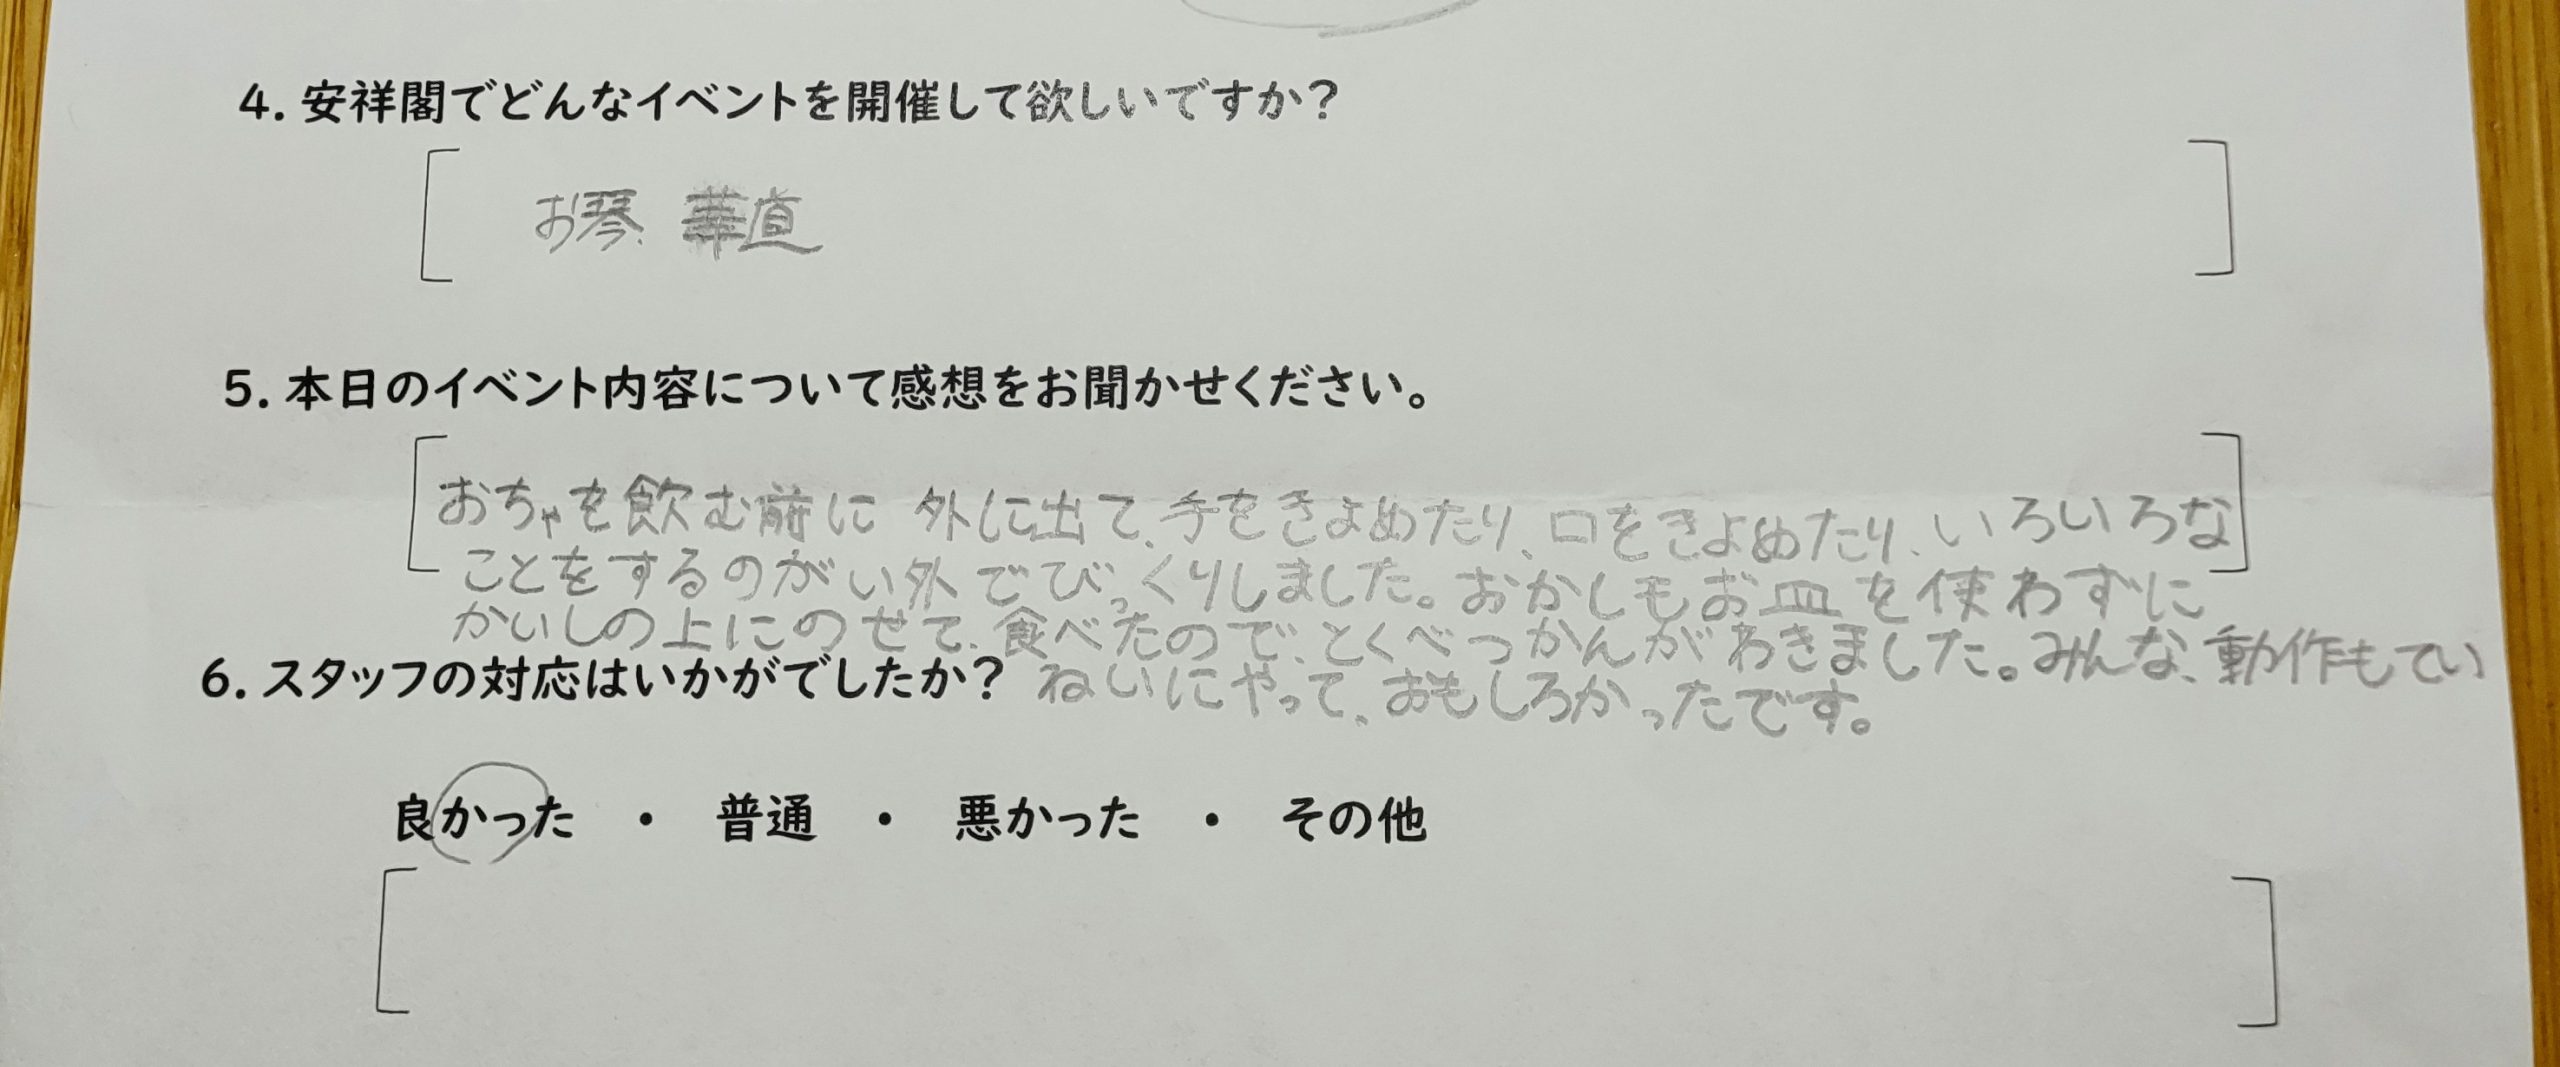 4. 安祥閣でどんなイベントを開催して欲しいですか？
お琴、華直
5. 本日のイベント内容について感想をお聞かせください。
おちゃを飲む前に 外に出て、手をきよめたり、口をきよめたり、いろいろな
ことをするのがい外でびっくりしました。おかしもお皿を使わずに
かいしの上にのせて、食べたので、とくべつかんがわきました。みんな、動作もてい
ねいにやって、おもしろかったです。
6. スタッフの対応はいかがでしたか？
良かった ・ 普通 ・ 悪かった ・ その他